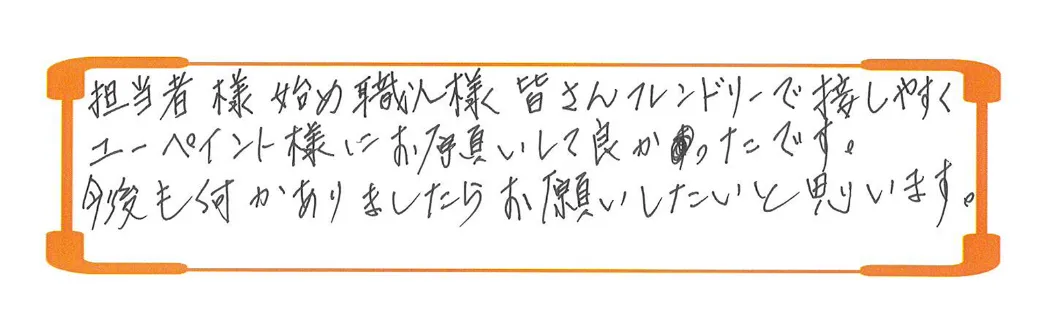 担当者様 始め職人様 皆さんフレンドリーで接しやすく
ユーペイント様にお願いして良かったです。
今後も何かありましたらお願いしたいと思います。